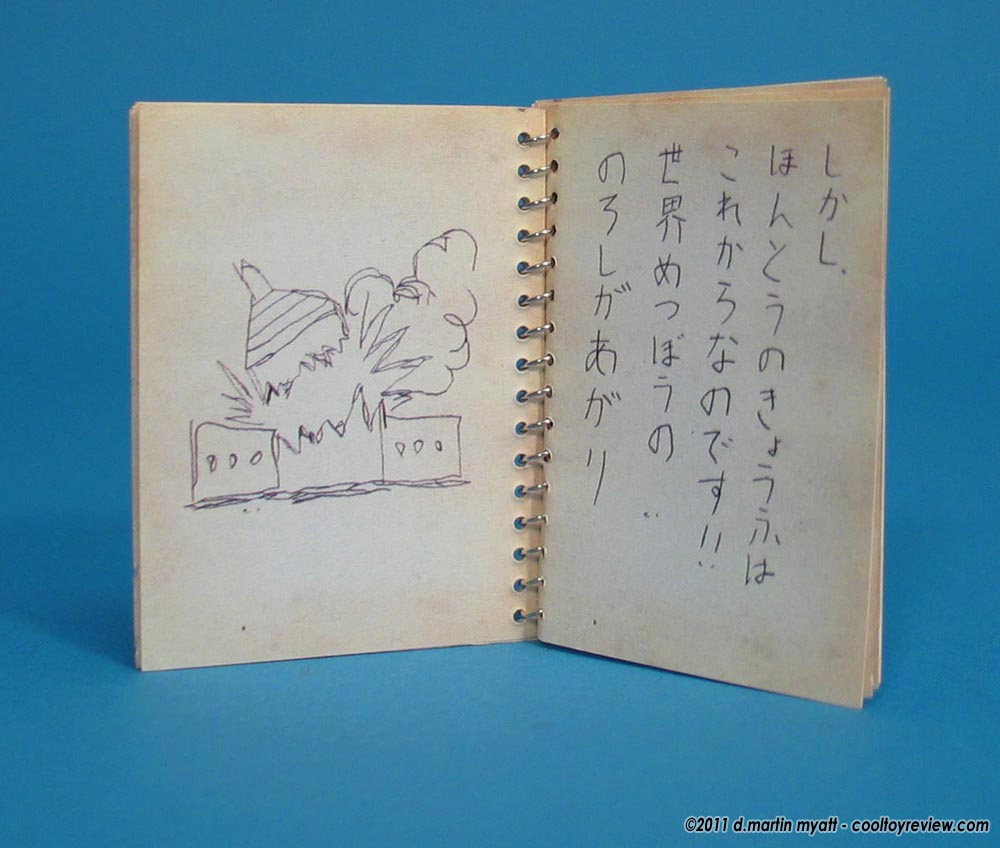 しかし、
ほんとうのきょうふは
これからなのです!!
世界めつぼうの
のろしがあがり
©2011 d.martin myatt - cooltoyreview.com